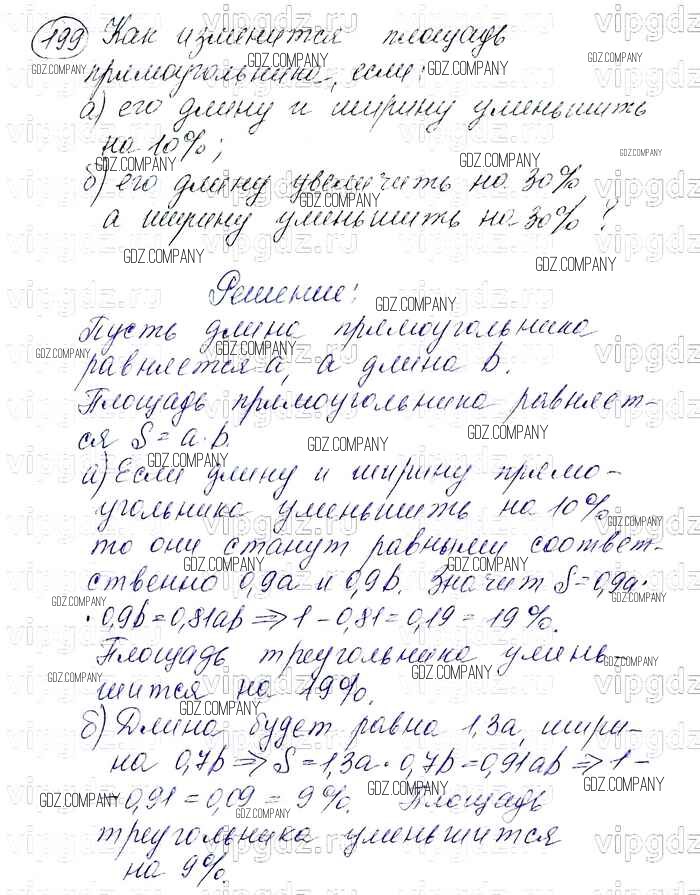 199 Как изменится площадь
прямоугольника, если:
а) его длину и ширину уменьшить
на 10%;
б) его длину увеличить на 30%
а ширину уменьшить на 30%?
Решение:
Пусть длина прямоугольника
равняется a, а длина b.
Площадь прямоугольника равняет-
ся S = a · b.
а) Если длину и ширину прямо-
угольника уменьшить на 10%,
то они станут равными соответ-
ственно 0,9a и 0,9b. Значит S = 0,9a ·
· 0,9b = 0,81ab ⇒ 1 - 0,81 = 0,19 = 19%.
Площадь треугольника умень-
шится на 19%.
б) Длина будет равна 1,3a, шири-
на 0,7b ⇒ S = 1,3a · 0,7b = 0,91ab ⇒ 1 -
- 0,91 = 0,09 = 9%. Площадь
треугольника уменьшится
на 9%.